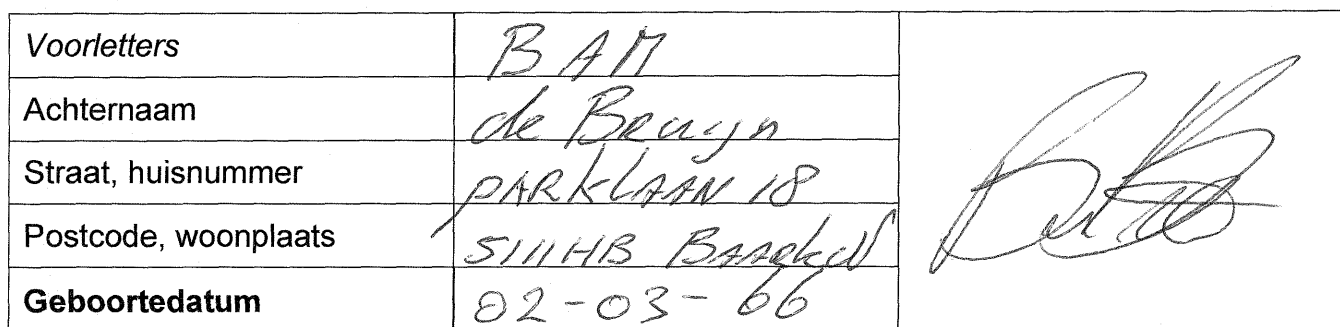 Voorletters BAM
Achternaam de Bruyn
Straat, huisnummer PARKLAAN 18
Postcode, woonplaats 5111HB
Geboortedatum 02-03-66